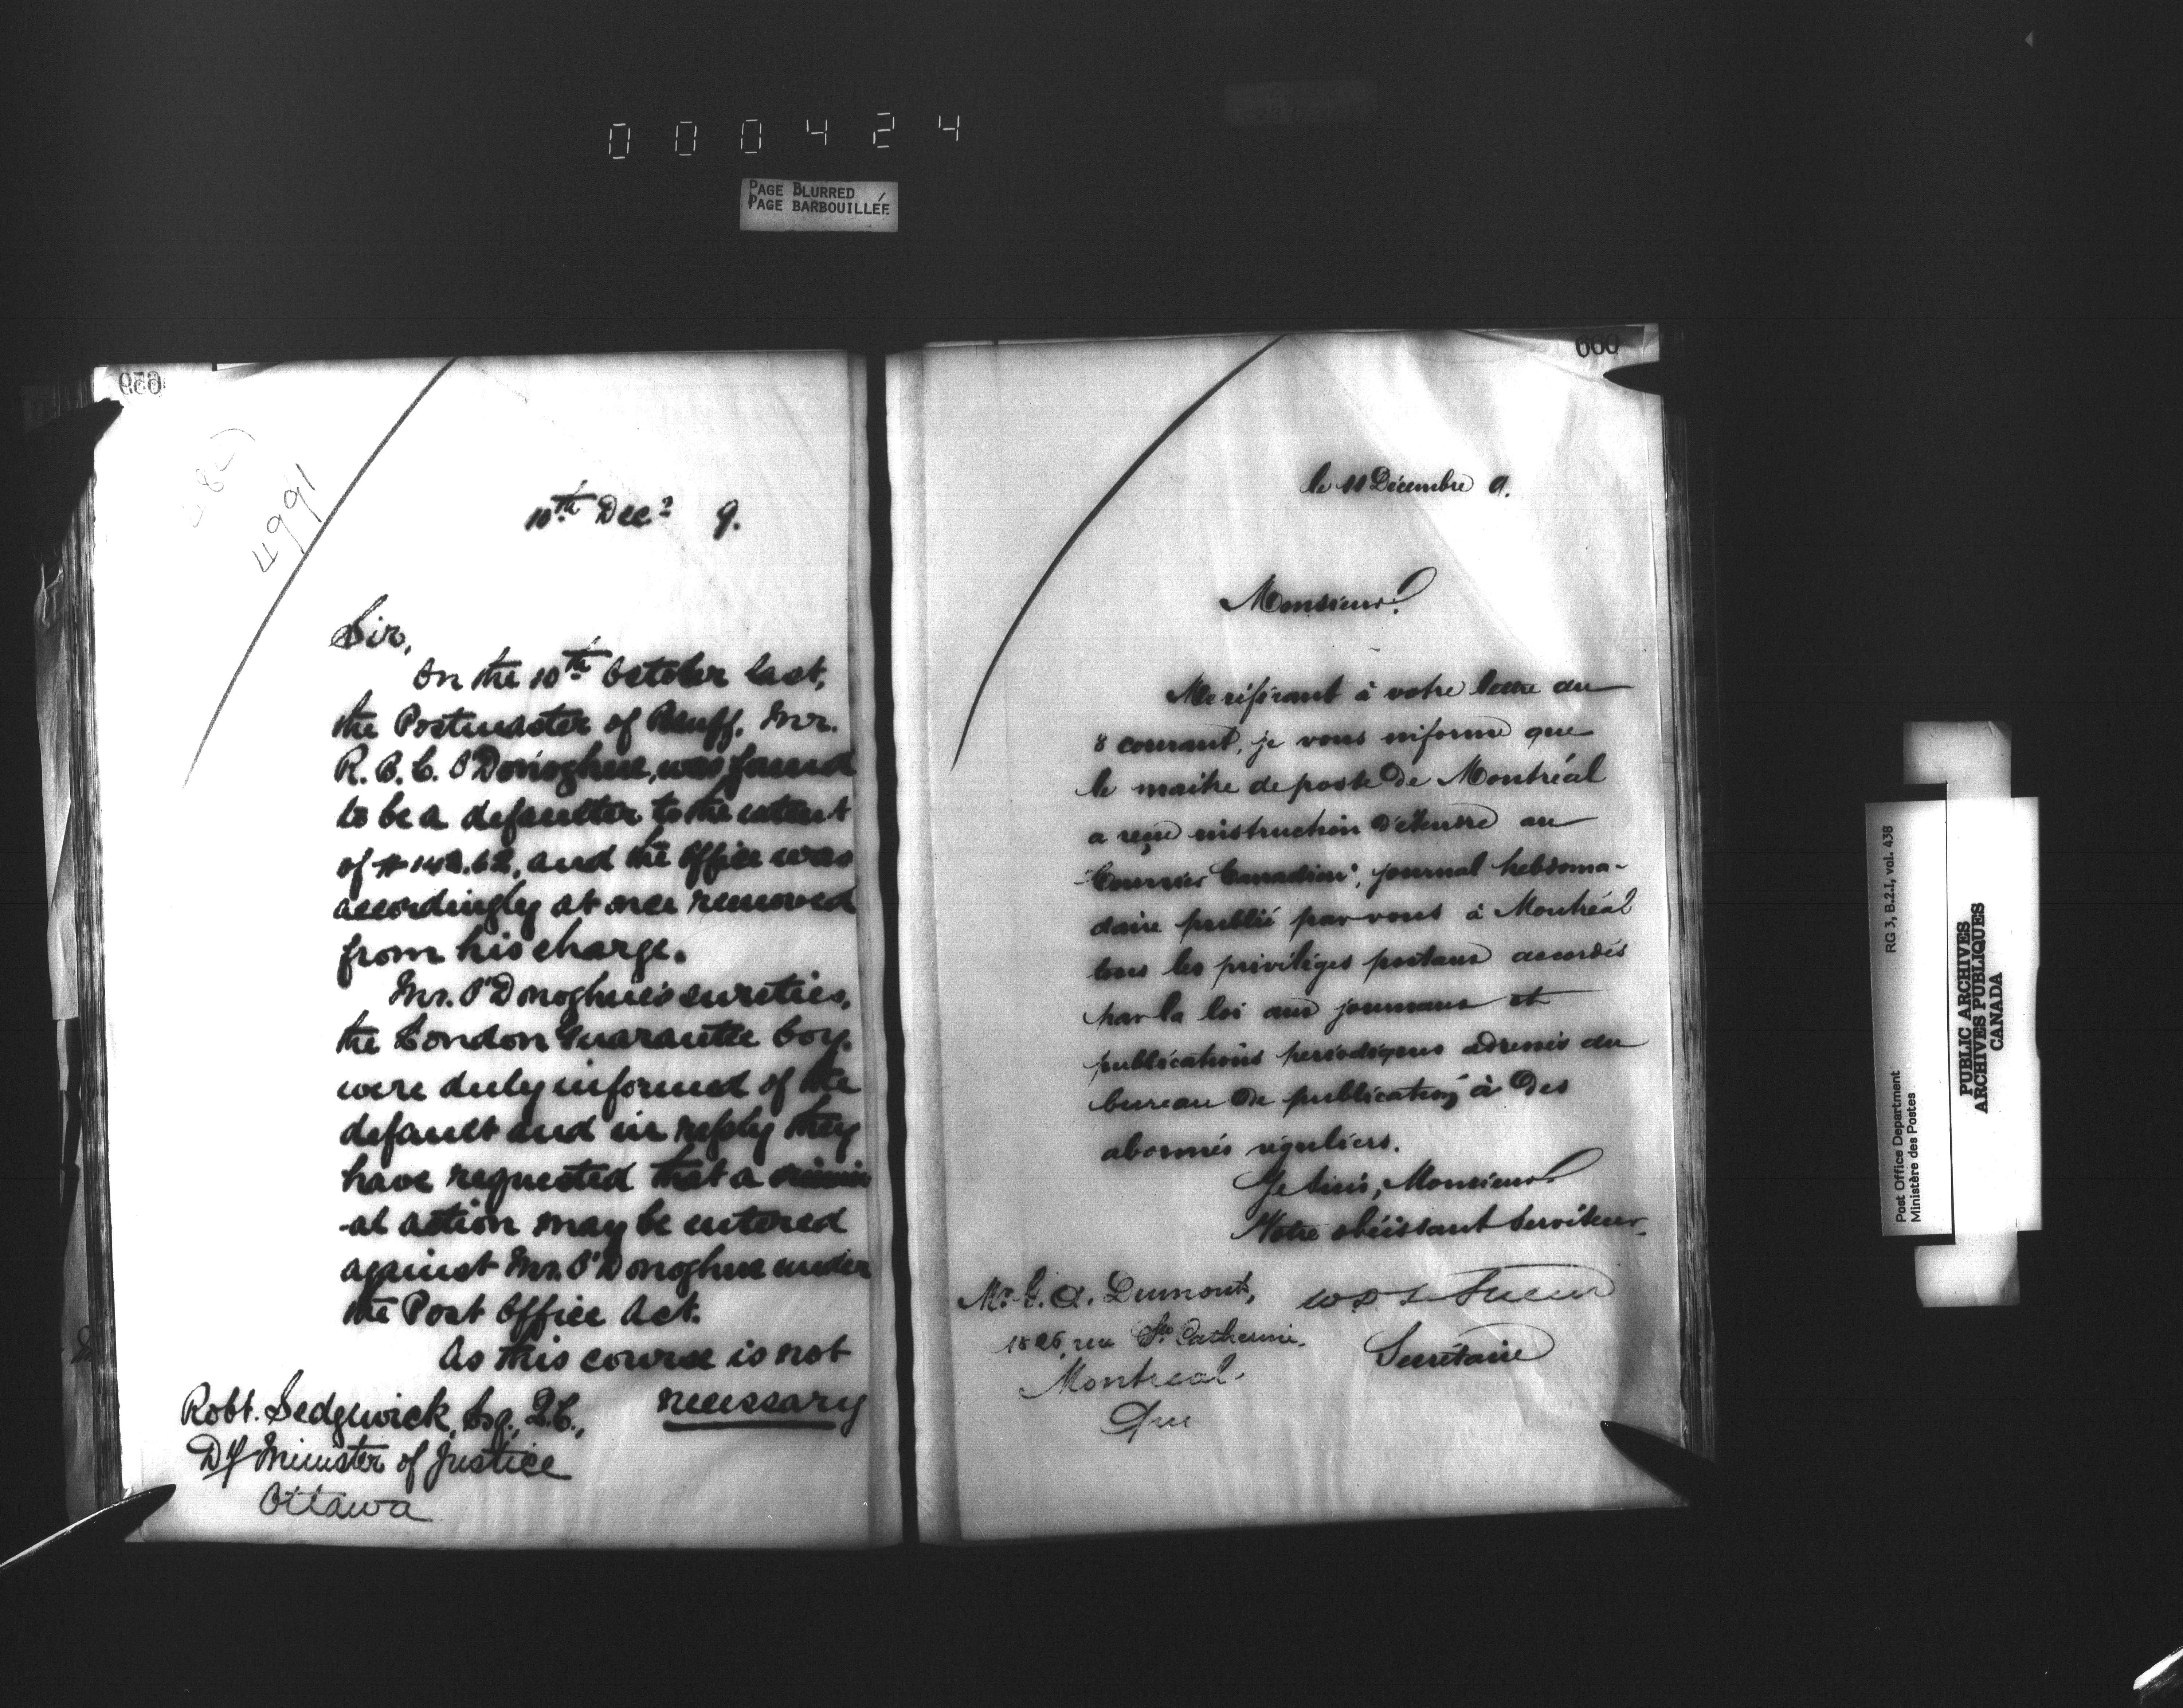 000424
PAGE BLURRED
PAGE BARBOUILLÉE
4991
10th Decr 9.
Sir,
On the 10th October last,
the Postmaster of Bluff, Mr.
R. B. C. O'Donoghue, was found
to be a defaulter to the extent
of and the Office was
accordingly at once removed
from his charge.
Mr. O'Donoghue's sureties,
the London Guarantee Coy.
were duly informed of the
default and in reply they
have requested that a crimin
-al action may be entered
against Mr. O'Donoghue under
the Post Office Act.
As this course is not
necessary
Robt. Sedgwick, Esq., Q.C.,
Dy Minister of Justice
Ottawa
660
le 11 Décembre 9.
Monsieur,
Me référant à votre lettre du
8 courant, je vous informe que
le maitre de poste de Montréal
a reçu instruction d'étendre au
"Courrier Canadien", journal hebdoma-
daire publié par vous à Montréal
tous les privilèges postaux accordés
par la loi aux journaux et
publications périodiques adressés du
bureau de publication à des
abonnés réguliers.
Je suis, Monsieur,
Votre obéissant Serviteur,
Secrétaire
A. Dumont,
rue Ste Catherine.
Montreal.
Que
Post Office Department
Ministère des Postes
RG 3, B.2.I, vol. 438
PUBLIC ARCHIVES
ARCHIVES PUBLIQUES
CANADA